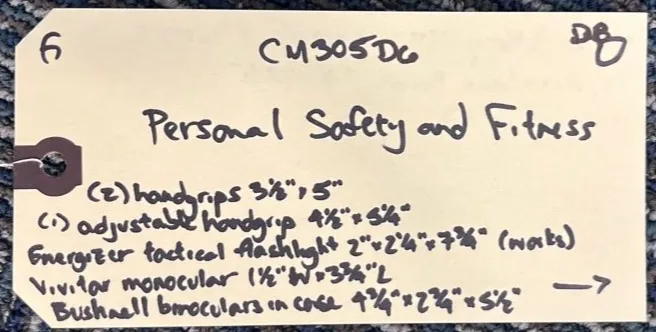 CM305D6
Personal Safety and Fitness
(2) handgrips 3½" x 5"
(1) adjustable handgrip 4½" x 5¼"
Energizer tactical flashlight 2" x 2¼" x 7¾" (works)
Vivitar monocular 1½" W x 3¾" L
Bushnell binoculars in case 4¾" x 2¾" x 5½" →